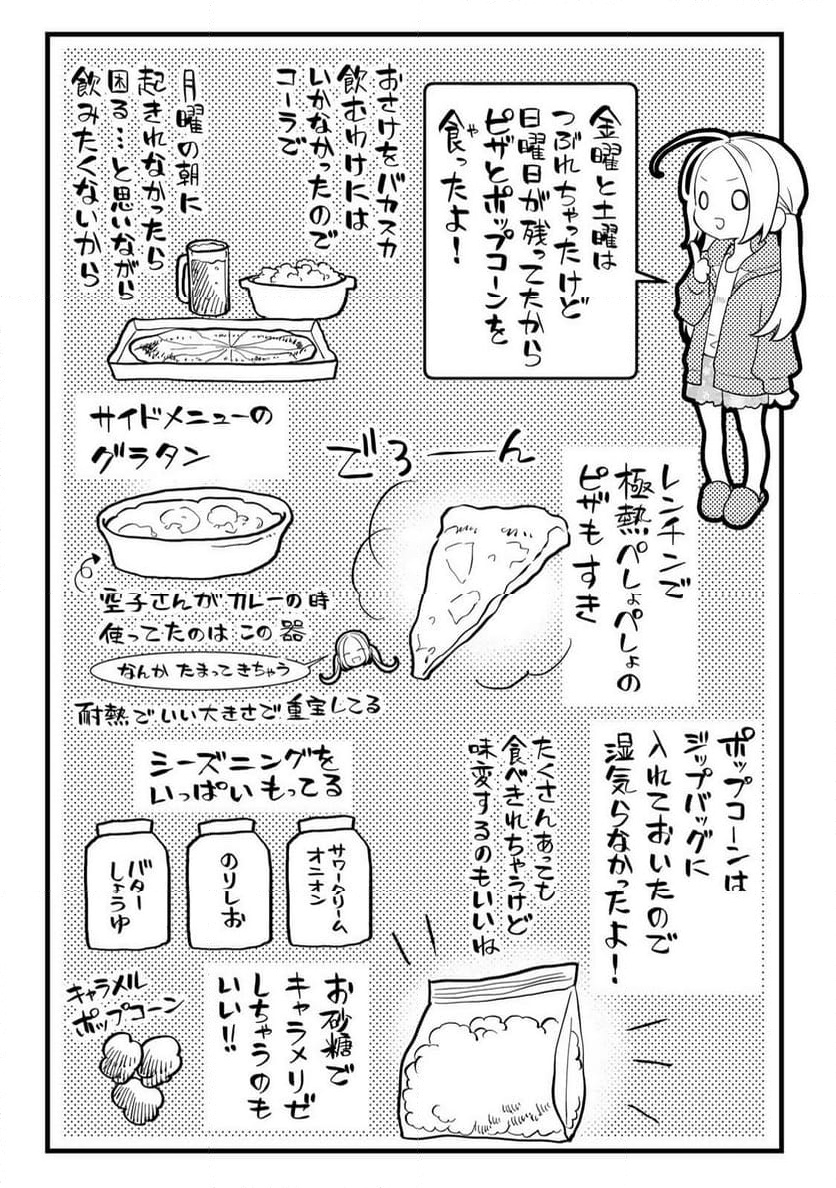 金曜と土曜は
つぶれちゃったけど
日曜日が残ってたから
ピザとポップコーンを
食ったよ!
や
おさけをバカスカ
飲むわけには
いかなかったので
コーラで
月曜の朝に
起きれなかったら
困る…と思いながら
飲みたくないから
レンチンで
極熱ぺしょぺしょの
ピザもすき
でろーん
サイドメニューの
グラタン
空子さんがカレーの時
使ってたのはこの器
なんかたまってきちゃう
耐熱でいい大きさで重宝してる
ポップコーンは
ジップバッグに
入れておいたので
湿気らなかったよ!
たくさんあっても
食べきれちゃうけど
味変するのもいいね
シーズニングを
いっぱいもってる
サワークリーム
オニオン
のりしお
バター
しょうゆ
お砂糖で
キャラメリゼ
しちゃうのも
いい!!
キャラメル
ポップコーン